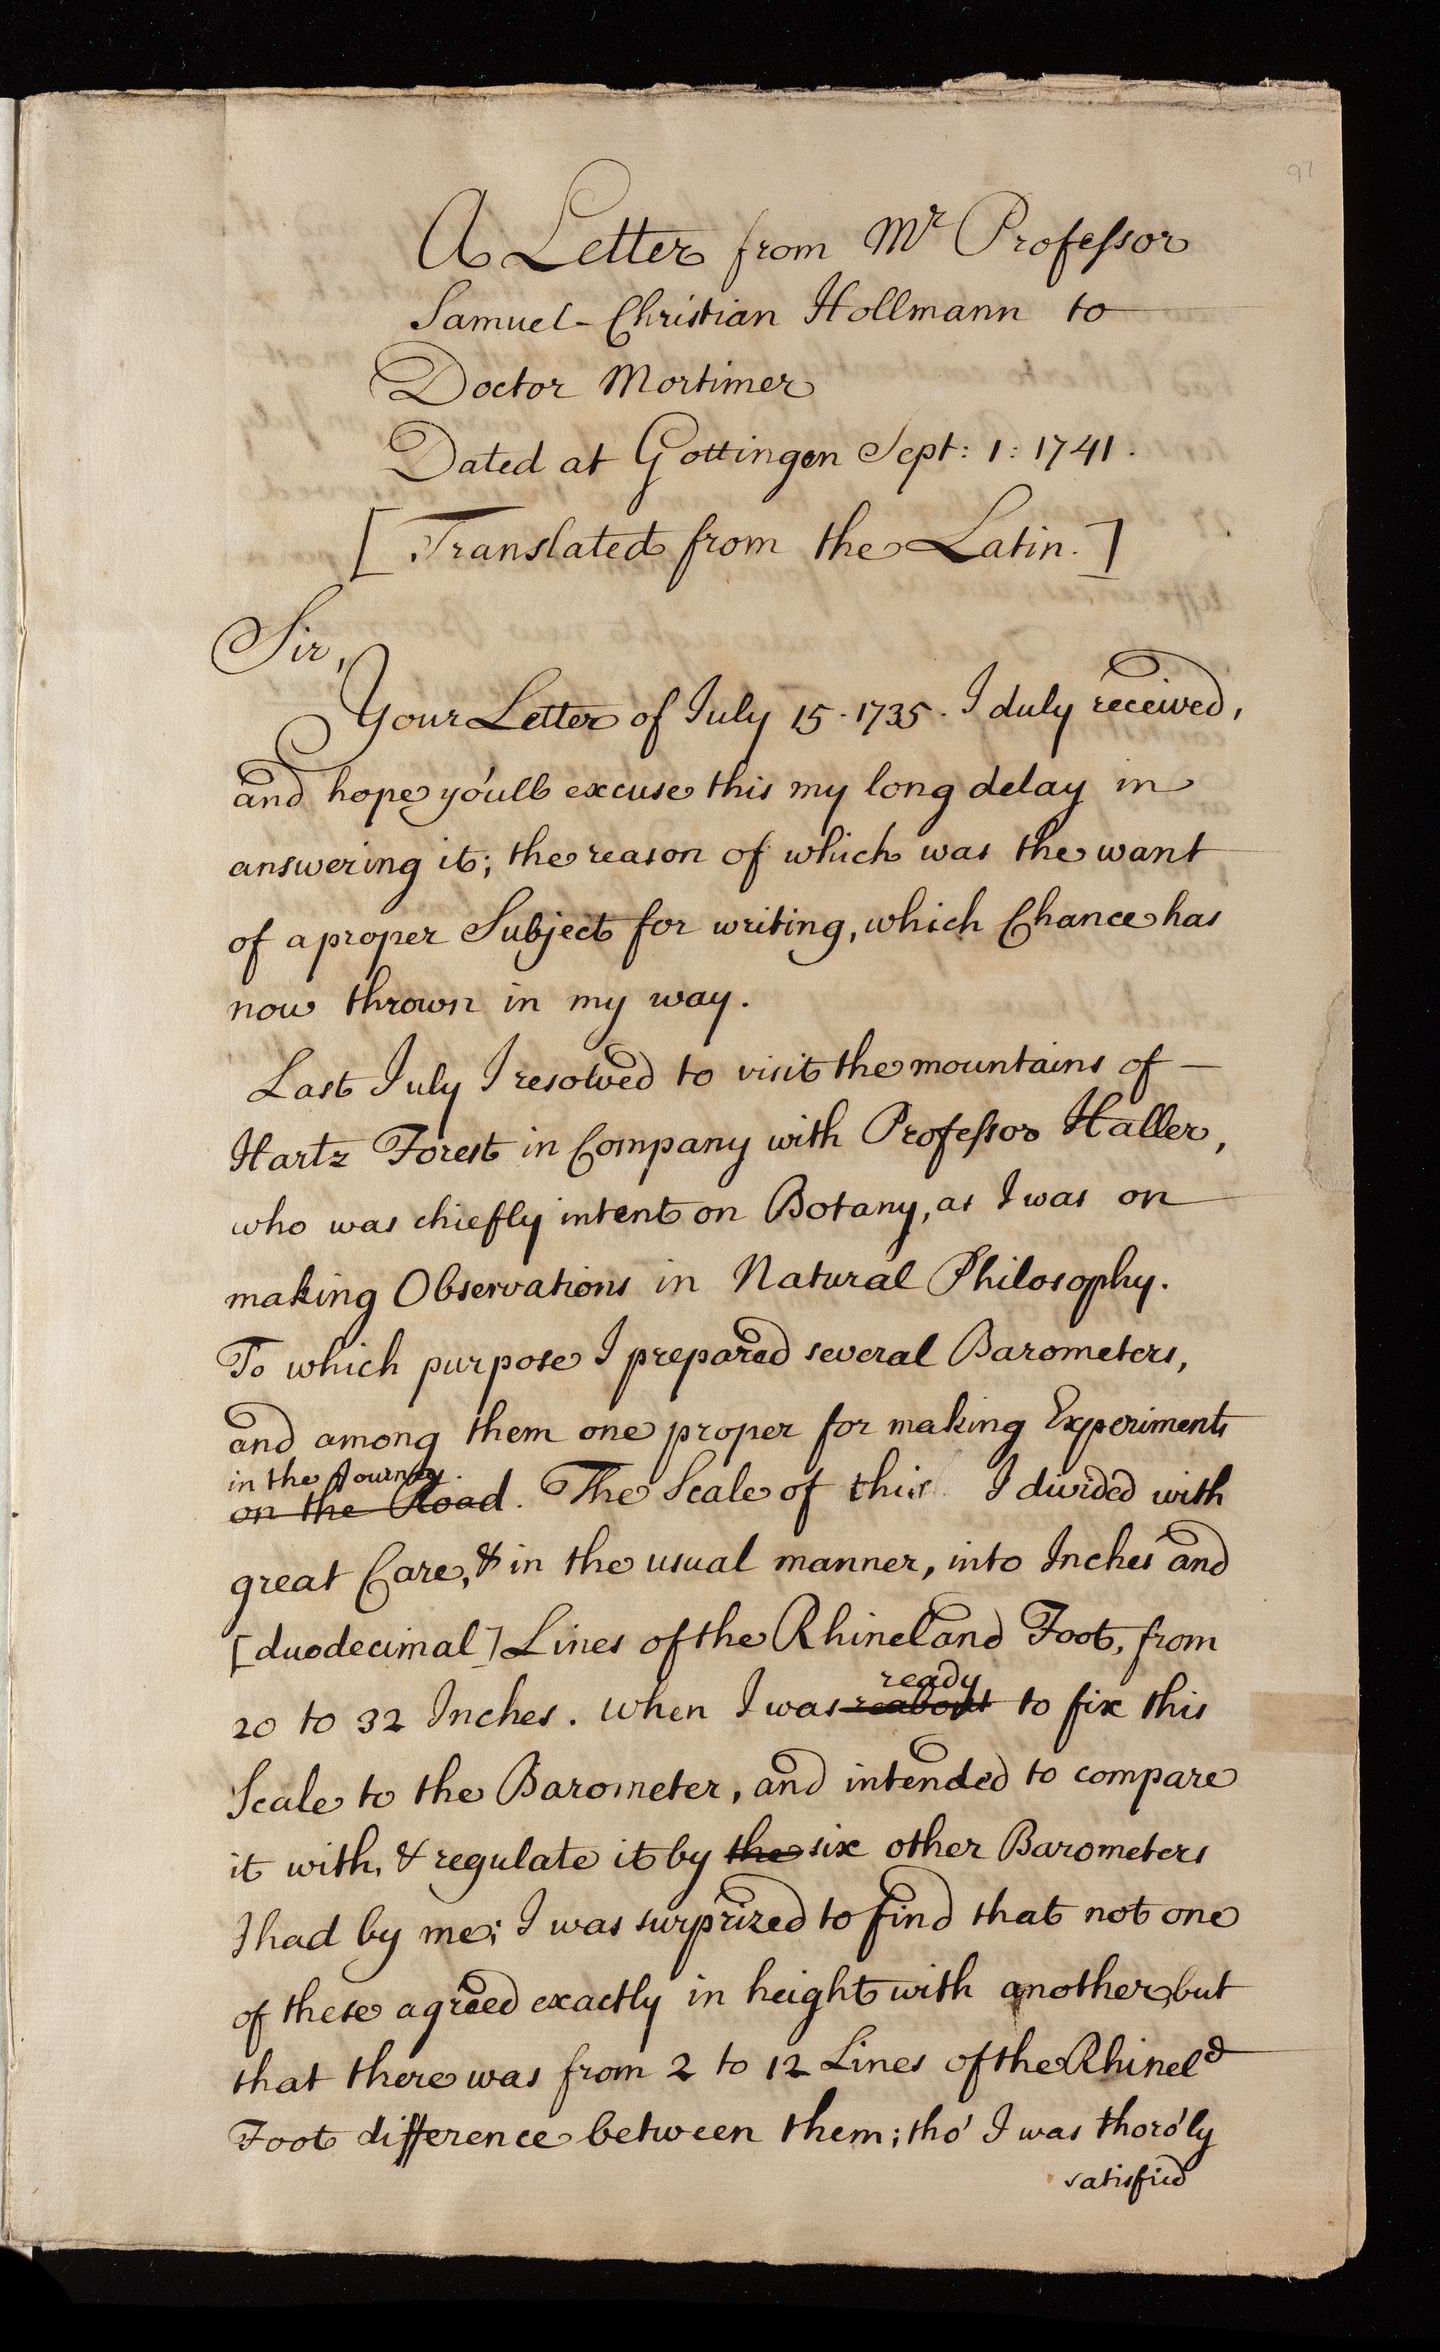 97
A Letter from Mr Professor
Samuel-Christian Hollmann to
Doctor Mortimer
Dated at Gottingen Sept: 1: 1741.
[Translated from the Latin.]
Sir,
Your Letter of July 15. 1735. I duly received,
and hope you'll excuse this my long delay in
answering it; the reason of which was the want
of a proper Subject for writing, which Chance has
now thrown in my way.
Last July I resolved to visit the mountains of —
Hartz Forest in Company with Professor Haller,
who was chiefly intent on Botany, as I was on
making Observations in Natural Philosophy.
To which purpose I prepared several Barometers,
and among them one proper for making Experiments
in the Journey.
on the Road. The Scale of this I divided with
great Care, & in the usual manner, into Inches and
[duodecimal] Lines of the Rhineland Foot, from
ready
20 to 32 Inches. When I was to fix this
Scale to the Barometer, and intended to compare
it with, & regulate it by the six other Barometers
I had by me; I was surprized to find that not one
of these agreed exactly in height with another, but
that there was from 2 to 12 Lines of the Rhineld
Foot difference between them; tho' I was thoro'ly
satisfied